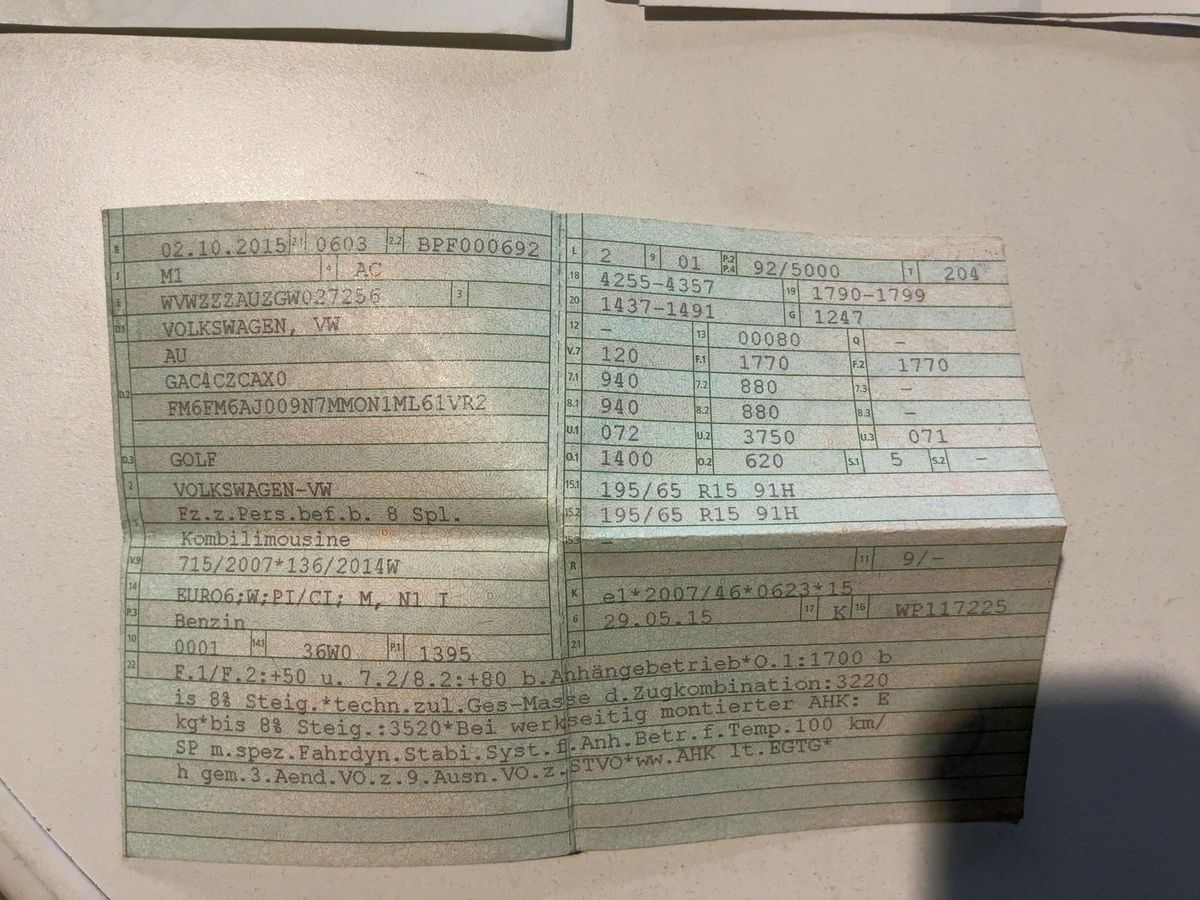 B 02.10.2015 2.1 0603 2.2 BPF000692
J M1 4 AC
E WVWZZZAUZGW027256 3
D.1 VOLKSWAGEN, VW
AU
D.2 GAC4CZCAX0
FM6FM6AJ009N7MMON1ML61VR2
D.3 GOLF
2 VOLKSWAGEN-VW
Fz.z.Pers.bef.b. 8 Spl.
5 Kombilimousine
V.9 715/2007*136/2014W
14 EURO6;W;PI/CI; M, N1 I
P.3 Benzin
10 0001 14.1 36W0 P.1 1395
L 2 9 01 P.2 P.4 92/5000 T 204
18 4255-4357 19 1790-1799
20 1437-1491 G 1247
12 – 13 00080 Q –
V.7 120 F.1 1770 F.2 1770
7.1 940 7.2 880 7.3 –
8.1 940 8.2 880 8.3 –
U.1 072 U.2 3750 U.3 071
O.1 1400 O.2 620 S.1 5 S.2 –
15.1 195/65 R15 91H
15.2 195/65 R15 91H
15.3 –
R 11 9/–
K e1*2007/46*0623*15
6 29.05.15 17 K 16 WP117225
21
22 F.1/F.2:+50 u. 7.2/8.2:+80 b.Anhängebetrieb*O.1:1700 b
is 8% Steig.*techn.zul.Ges-Masse d.Zugkombination:3220
kg*bis 8% Steig.:3520*Bei werkseitig montierter AHK: E
SP m.spez.Fahrdyn.Stabi.Syst.f.Anh.Betr.f.Temp.100 km/
h gem.3.Aend.VO.z.9.Ausn.VO.z.STVO*ww.AHK lt.EGTG*